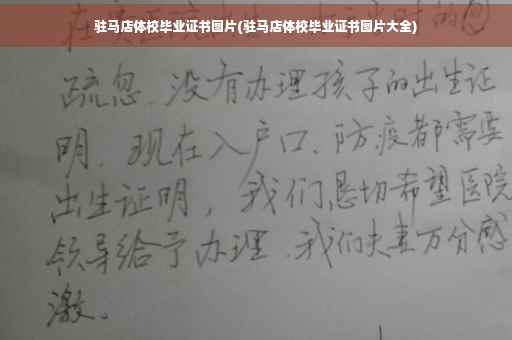 驻马店体校毕业证书图片(驻马店体校毕业证书图片大全)
疏忽、没有办理孩子的出生证
明、现在入户口、防疫都需要
出生证明，我们恳切希望医院
领导给予办理、我们夫妻万分感
激。